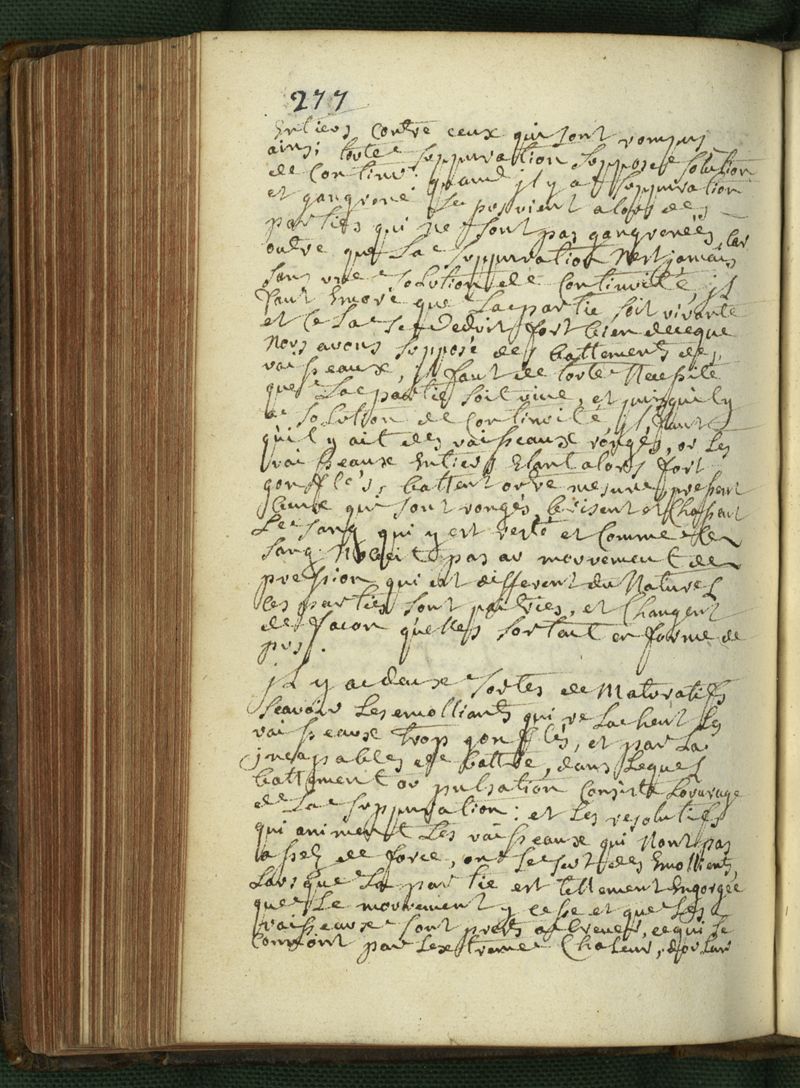 277
Entiers contre ceux qui sont rompus
ainsi toute suppuration suppose solution
de continu: quand il y a suppuration
et gangrene le pus vient alors des
parties qui ne sont pas gangrenées car
outre que la suppuration n'est jamais
sans une solution de continuité, il
faut encore que la partie soit vivante
et cela se deduit fort bien de ce que
nous avons supposé des battements de
vaisseaux, il faut de toute necessité
que la partie soit vive, et puisqu'il y
a solution de continuité, il faut
qu'il y ait des vaisseaux rongés, or les
vaisseaux entiers etant alors fort
gonflés, battent outre mesure pressent
ceux qui sont rongés, brisent et chassent
le sang qui y est resté et comme le
sang n'obeit pas au mouvement de
pression qui est different du naturel
les parties sont paitries, et changent
de façon qu'elles sortent en forme de
pus.
il y a deux sortes de maturatifs
scavoir les emollients qui relachent les
vaisseaux trop gonflés, et par la
incapables de battre, dans lequel
battement ou pulsation consiste l'ouvrage
de la suppuration: et les resolutifs
qui animent les vaisseaux qui n'ont pas
assez de force, on se sert des emollients,
lors que la partie est tellement engorgée
que le mouvement y cesse et que les
vaisseaux sont prets a crever, ce qui se
connoit par l'extreme chaleur, douleur